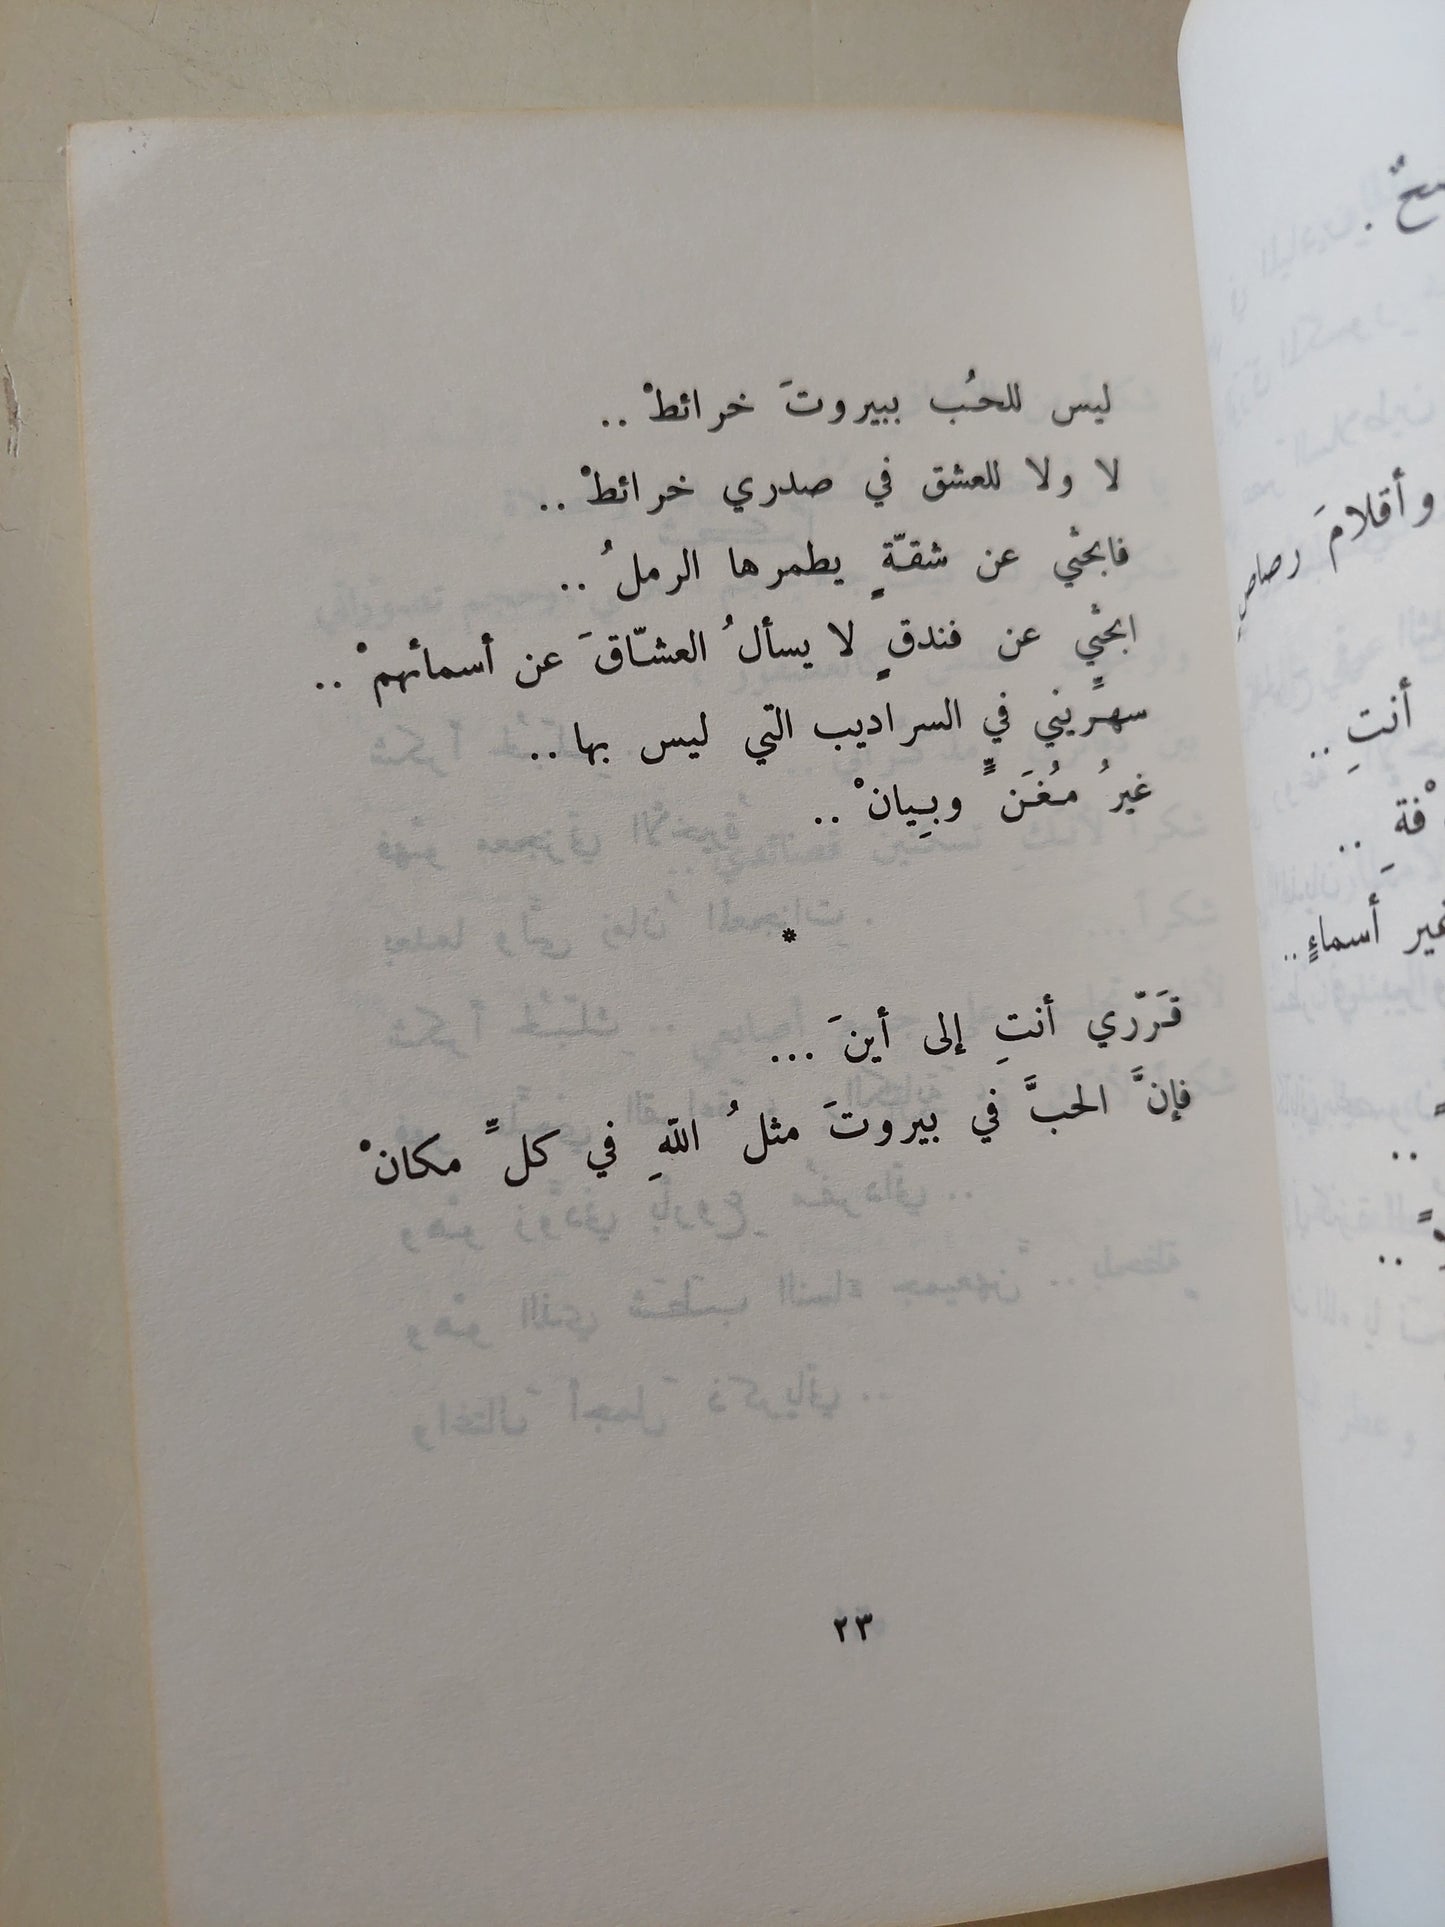 ليس للحُب ببيروتَ خرائطْ ..
لا ولا للعشق في صدري خرائطْ ..
فابحثي عن شقّةٍ يطمرها الرملُ ..
ابحثي عن فندقٍ لا يسألُ العشّاقَ عن أسمائهمْ ..
سهِّريني في السراديب التي ليس بها ..
غيرُ مُغَنٍّ وبِيانْ ..
*
قَرّري أنتِ إلى أينَ ...
فإنَّ الحبَّ في بيروتَ مثلُ اللّهِ في كلِّ مكانْ
٢٣
وأقلامَ رصاصٍ
أنتِ ..
غير أسماءٍ ..